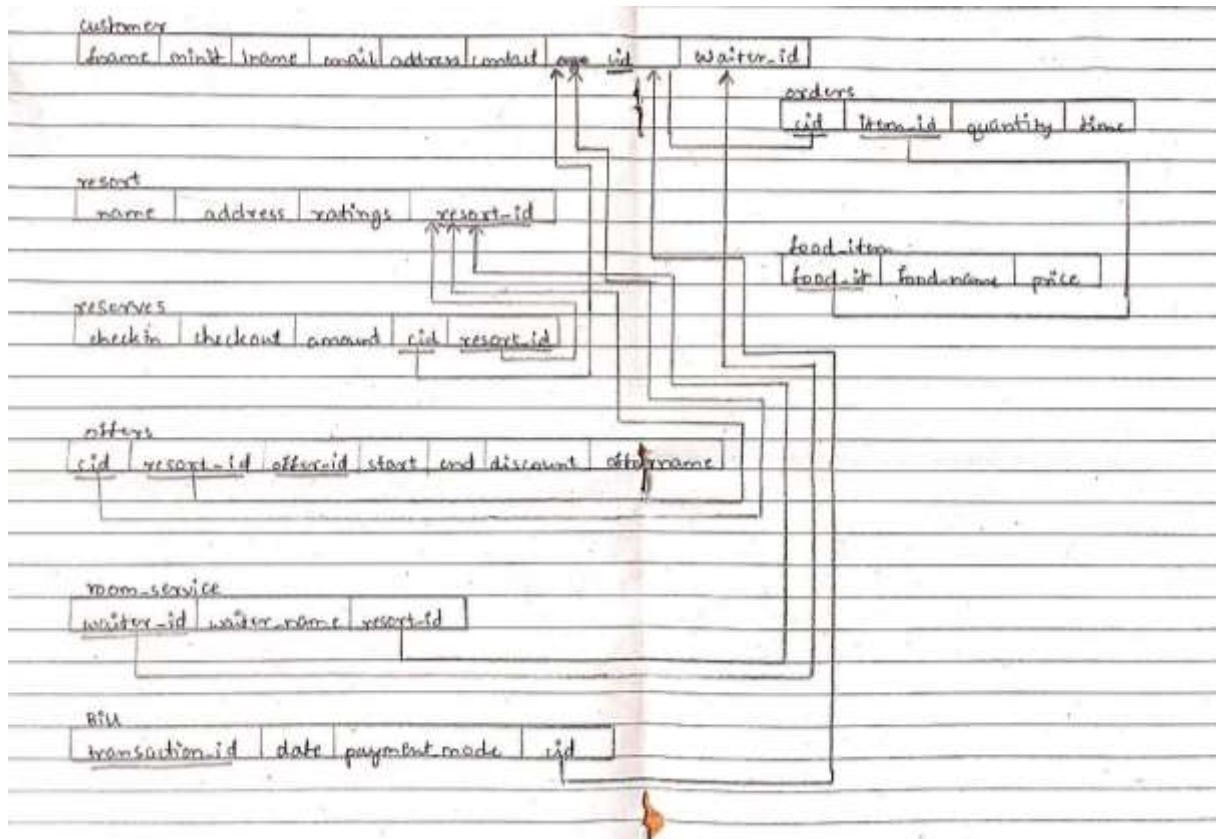 customer
fname minit lname email address contact cid waiter_id
orders
cid item_id quantity time
resort
name address ratings resort-id
food_item
food_it food_name price
reserves
checkin checkout amount cid resort_id
offers
cid resort-id offer-id start end discount offername
room_service
waiter_id waiter_name resort-id
Bill
transaction_id date payment_mode cid